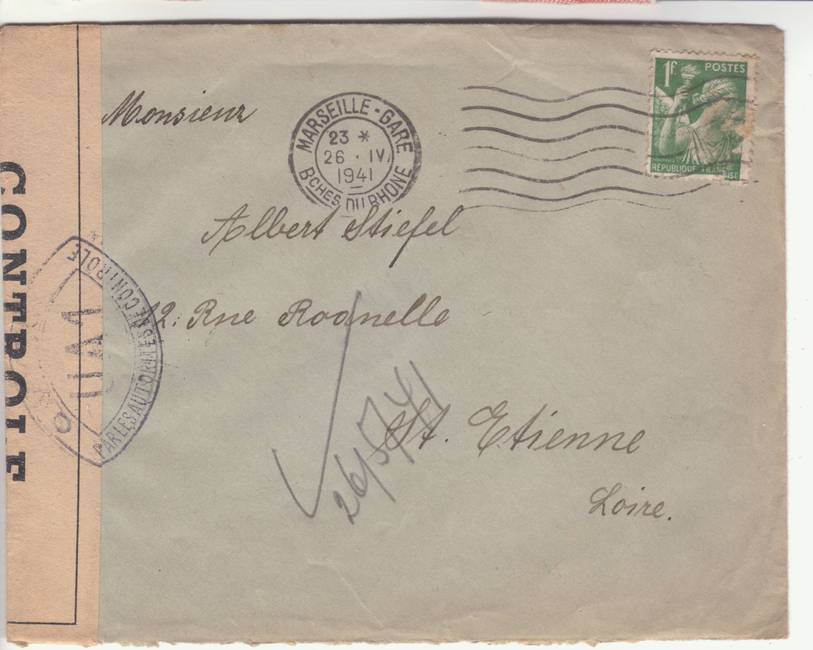 Monsieur
MARSEILLE-GARE
23 *
26 · IV
1941
BCHES DU RHONE
1F POSTES
RÉPUBLIQUE FRANÇAISE
Albert Stiefel
12: Rue
St. Etienne
Loire.
26/5/41
CONTROLE
PAR LES AUTORITES DE CONTROLE